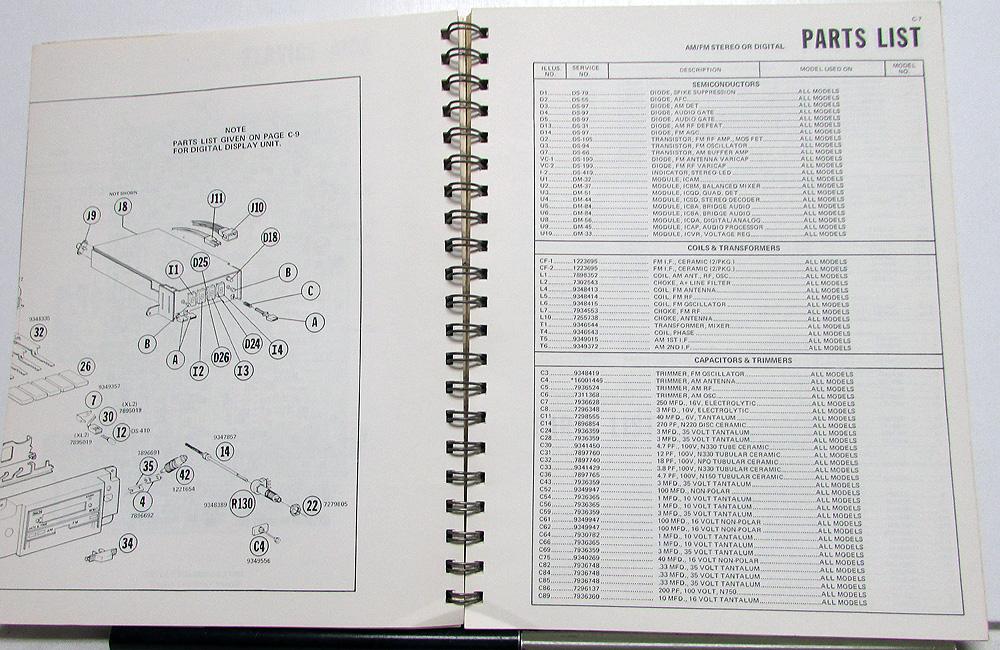 NOTE
PARTS LIST GIVEN ON PAGE C-9
FOR DIGITAL DISPLAY UNIT.
NOT SHOWN
J9
J8
J11
J10
D18
I1
D25
B
C
A
B
A
I2
D26
I3
D24
I4
9348335
32
26
9349357
7
(XL2)
7895019
30
I2
DS-410
(XL2)
7895019
9347857
14
7896691
35
42
1221654
4
7896692
9348389
R130
22
7279805
34
C4
9349556
C-7
AM/FM STEREO OR DIGITAL PARTS LIST
ILLUS. NO. SERVICE NO. DESCRIPTION MODEL USED ON MODEL NO.
SEMICONDUCTORS
D1 DS-79 DIODE, SPIKE SUPPRESSION ALL MODELS
D2 DS-55 DIODE, AFC ALL MODELS
D3 DS-97 DIODE, AM DET ALL MODELS
D4 DS-97 DIODE, AUDIO GATE ALL MODELS
D5 DS-97 DIODE, AUDIO GATE ALL MODELS
D13 DS-31 DIODE, AM RF DEFEAT ALL MODELS
D14 DS-97 DIODE, FM AGC ALL MODELS
Q2 DS-105 TRANSISTOR, FM RF AMP., MOS FET ALL MODELS
Q3 DS-94 TRANSISTOR, FM OSCILLATOR ALL MODELS
Q7 DS-66 TRANSISTOR, AM BUFFER AMP ALL MODELS
VC-1 DS-190 DIODE, FM ANTENNA VARICAP ALL MODELS
VC-2 DS-190 DIODE, FM RF VARICAP ALL MODELS
I-2 DS-410 INDICATOR, STEREO-LED ALL MODELS
U1 DM-32 MODULE, ICAM ALL MODELS
U2 DM-37 MODULE, ICBM, BALANCED MIXER ALL MODELS
U3 DM-51 MODULE, ICQD, QUAD, DET ALL MODELS
U4 DM-44 MODULE, ICSD, STEREO DECODER ALL MODELS
U5 DM-84 MODULE, ICBA, BRIDGE AUDIO ALL MODELS
U6 DM-84 MODULE, ICBA, BRIDGE AUDIO ALL MODELS
U8 DM-56 MODULE, ICDA, DIGITAL/ANALOG ALL MODELS
U9 DM-45 MODULE, ICAP, AUDIO PROCESSOR ALL MODELS
U10 DM-33 MODULE, ICVR, VOLTAGE REG ALL MODELS
COILS & TRANSFORMERS
CF-1 1223695 FM I.F., CERAMIC (2/PKG.) ALL MODELS
CF-2 1223695 FM I.F., CERAMIC (2/PKG.) ALL MODELS
L1 7898352 COIL, AM ANT., RF, OSC ALL MODELS
L2 7302543 CHOKE, A+ LINE FILTER ALL MODELS
L4 9348413 COIL, FM ANTENNA ALL MODELS
L5 9348414 COIL, FM RF ALL MODELS
L6 9348415 COIL, FM OSCILLATOR ALL MODELS
L7 7934553 CHOKE, FM RF ALL MODELS
L10 7255738 CHOKE, ANTENNA ALL MODELS
T1 9346544 TRANSFORMER, MIXER ALL MODELS
T4 9346543 COIL, PHASE ALL MODELS
T5 9349015 AM 1ST I.F. ALL MODELS
T6 9349372 AM 2ND I.F. ALL MODELS
CAPACITORS & TRIMMERS
C3 9348419 TRIMMER, FM OSCILLATOR ALL MODELS
C4 *16001445 TRIMMER, AM ANTENNA ALL MODELS
C5 7936524 TRIMMER, AM RF ALL MODELS
C6 7311368 TRIMMER, AM OSC ALL MODELS
C7 7936628 250 MFD., 16V, ELECTROLYTIC ALL MODELS
C8 7296348 3 MFD., 10V, ELECTROLYTIC ALL MODELS
C11 7298555 40 MFD., 6V, TANTALUM ALL MODELS
C14 7896854 270 PF, N220 DISC CERAMIC ALL MODELS
C24 7936359 3 MFD., 35 VOLT TANTALUM ALL MODELS
C28 7936359 3 MFD., 35 VOLT TANTALUM ALL MODELS
C30 9341450 4.7 PF., 100V, N330 TUBE CERAMIC ALL MODELS
C31 7897760 12 PF, 100V, N330 TUBULAR CERAMIC ALL MODELS
C32 7897740 18 PF, 100V, NPO TUBULAR CERAMIC ALL MODELS
C33 9341429 3.8 PF, 100V, N330 TUBULAR CERAMIC ALL MODELS
C36 7897765 4.7 PF, 100V, N150 TUBULAR CERAMIC ALL MODELS
C43 7936359 3 MFD., 35 VOLT TANTALUM ALL MODELS
C52 9349947 100 MFD., NON-POLAR ALL MODELS
C54 7936365 1 MFD., 10 VOLT TANTALUM ALL MODELS
C56 7936365 1 MFD., 10 VOLT TANTALUM ALL MODELS
C59 7936359 3 MFD., 35 VOLT TANTALUM ALL MODELS
C61 9349947 100 MFD., 16 VOLT NON-POLAR ALL MODELS
C62 9349947 100 MFD., 16 VOLT NON-POLAR ALL MODELS
C64 7930782 1 MFD., 10 VOLT TANTALUM ALL MODELS
C66 7936365 1 MFD., 10 VOLT TANTALUM ALL MODELS
C69 7936359 3 MFD., 35 VOLT TANTALUM ALL MODELS
C75 9340269 40 MFD., 16 VOLT NON-POLAR ALL MODELS
C82 7936748 .33 MFD., 35 VOLT TANTALUM ALL MODELS
C84 7936748 .33 MFD., 35 VOLT TANTALUM ALL MODELS
C85 7936748 .33 MFD., 35 VOLT TANTALUM ALL MODELS
C86 7296137 200 PF, 100 VOLT, N750 ALL MODELS
C89 7936360 10 MFD., 16 VOLT TANTALUM ALL MODELS